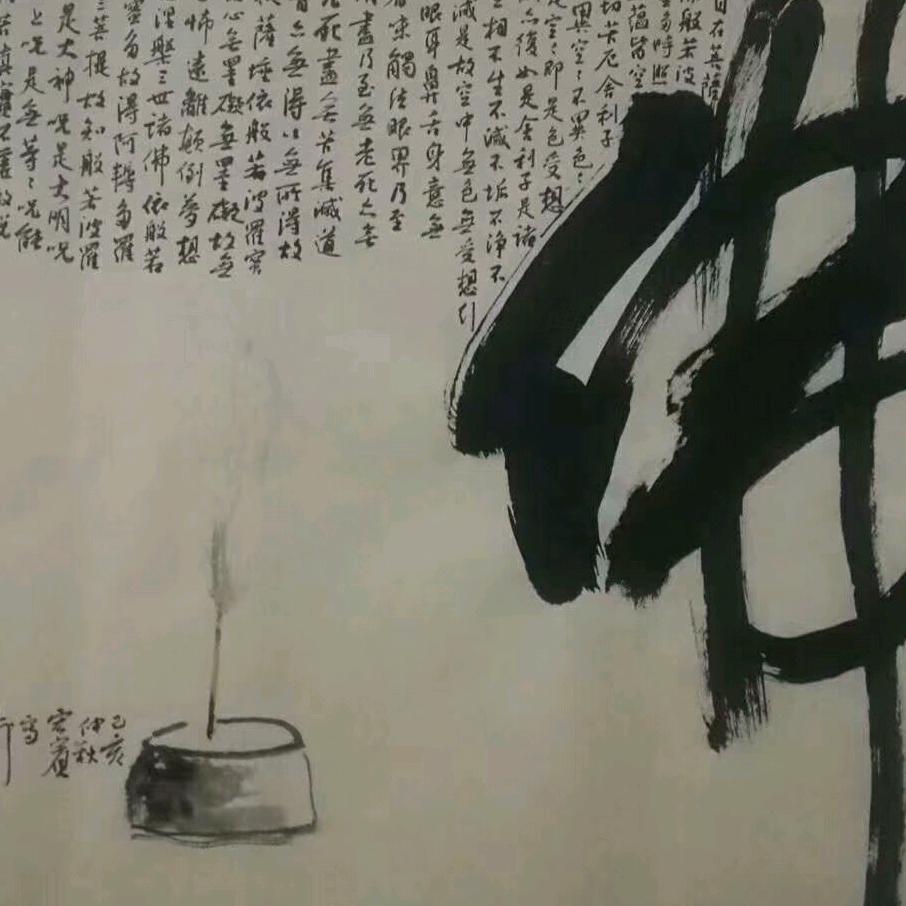 自在菩薩
般若波
多時照
蘊皆空
切苦厄舍利子
異空〻不異色〻
是空〻即是色受想
亦復如是舍利子是諸
相不生不滅不垢不净不
減是故空中無色無受想行
眼耳鼻舌身意無
香味觸法眼界乃至
盡乃至無老死亦無
老死盡無苦集滅道
智亦無得以無所得故
薩埵依般若波羅蜜
心無罣礙無罣礙故無
怖遠離顛倒夢想
涅槃三世諸佛依般若
蜜多故得阿耨多羅
三菩提故知般若波羅
是大神咒是大明咒
上咒是無等〻咒能
苦真實不虛故說
佛
己亥
仲秋
宏賓
寫